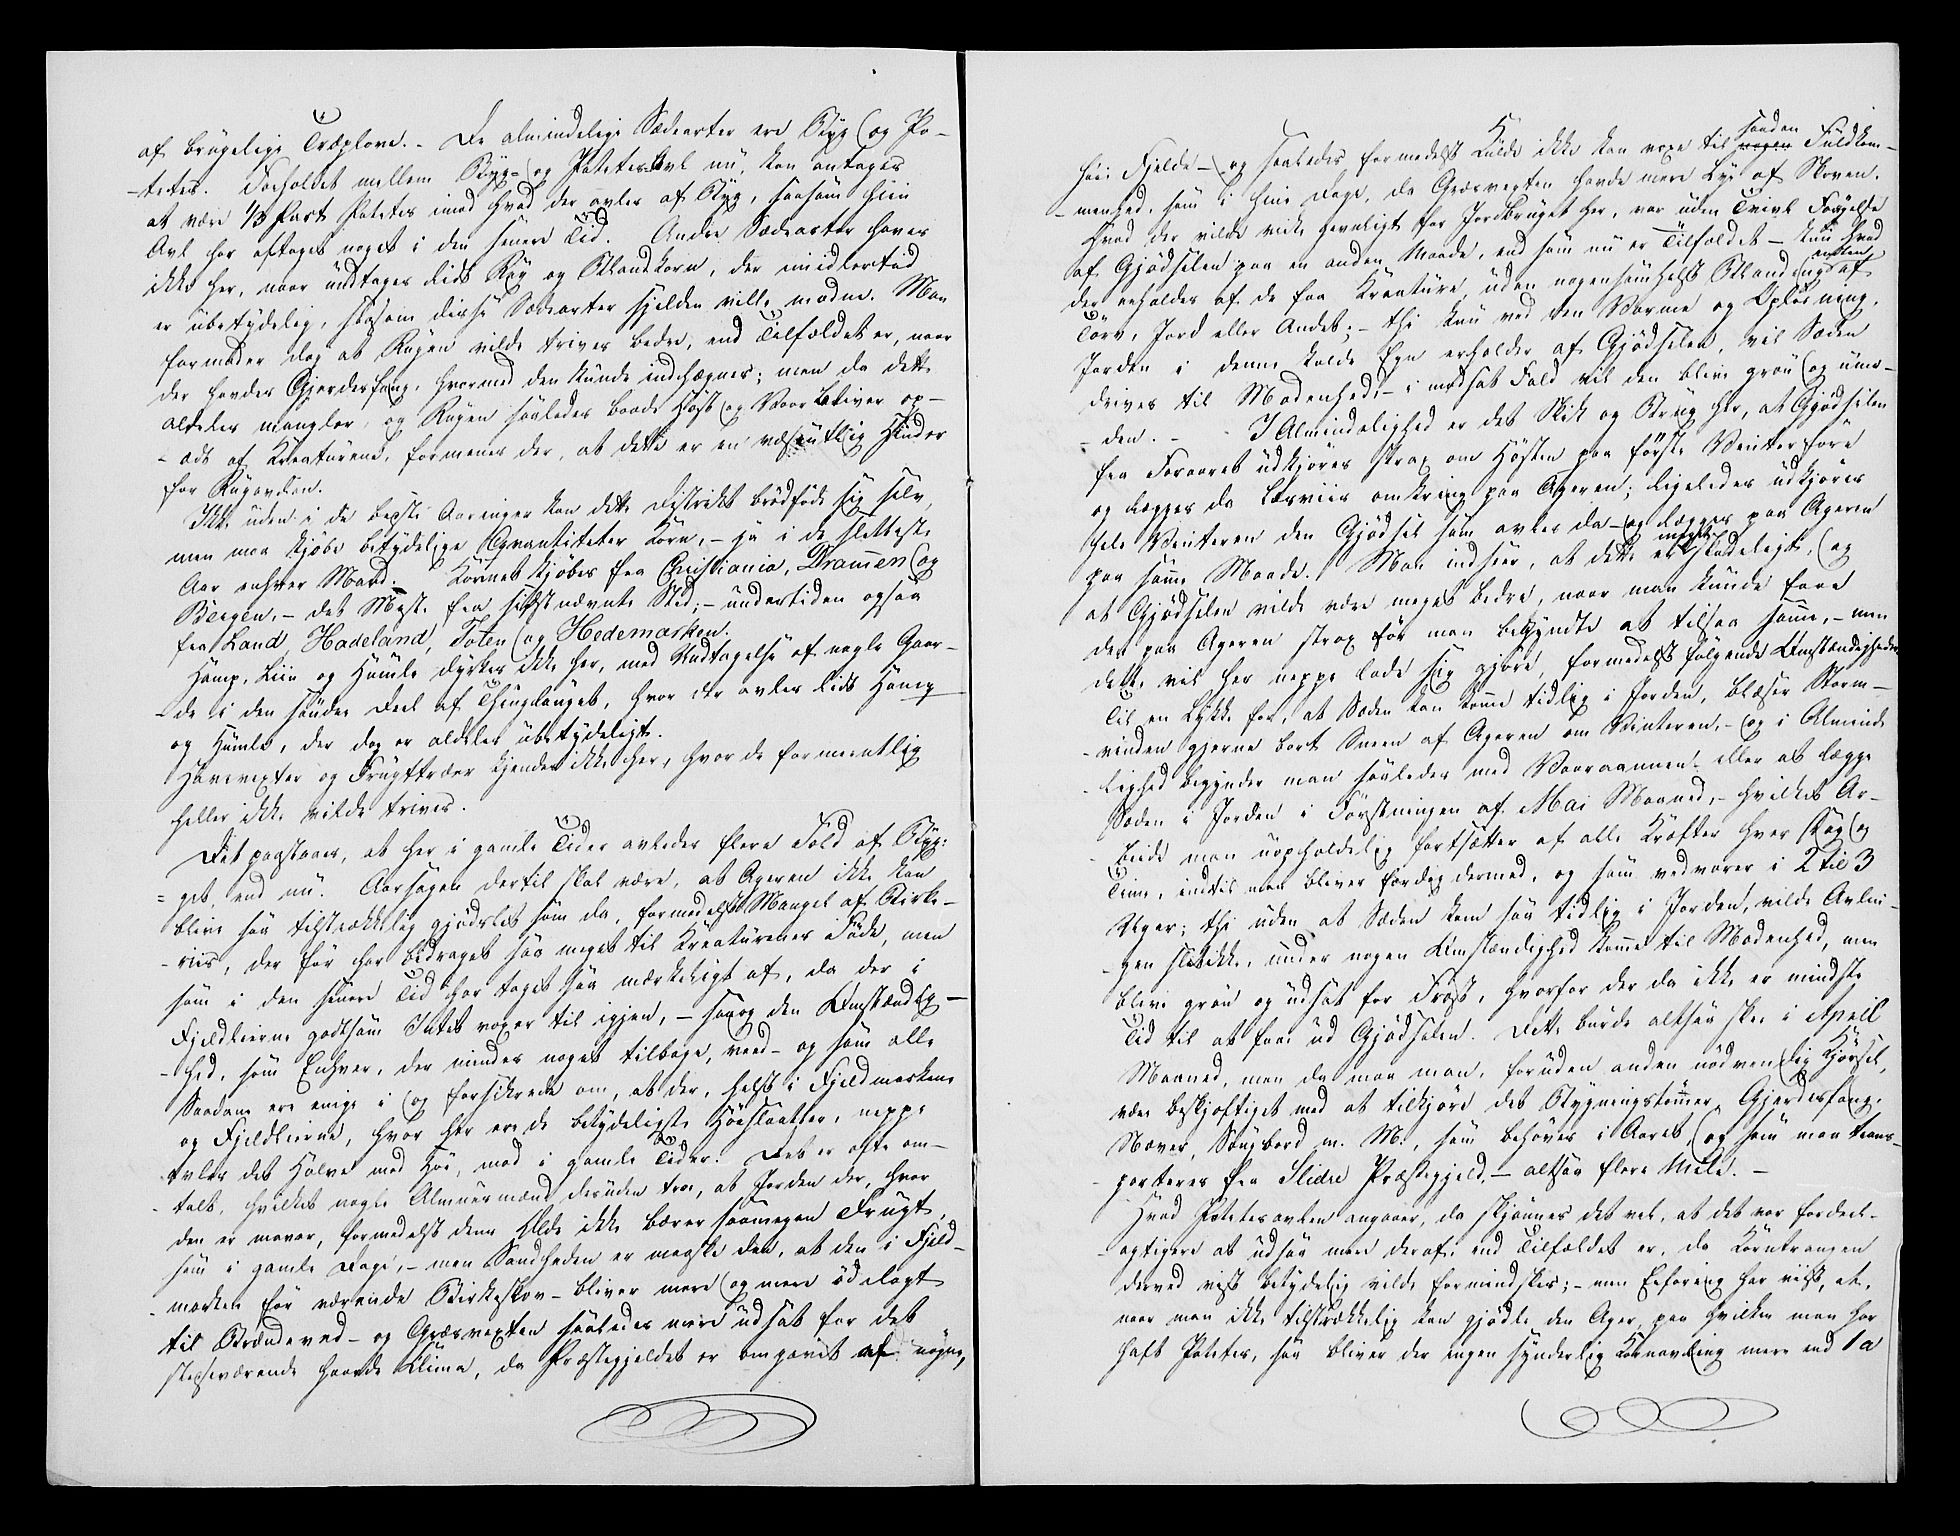 af brugelige Træplove. - De almindelige Sædearter ere Byg og Po-
-tetes. Forholdet mellem Byg- og Potetesavl nu, kan antages
at være 1/3 Part Potetes imod hvad der avles af Byg, saasom hiin
Avl har aftaget noget i den senere Tid. Andre Sædearter haves
ikke her, naar undtages lidt Rug og Blandkorn, der imidlertid
er übetydelig, saasom disse Sædearter sjelden ville modne. Man
formoder dog at Rugen vilde trives bedre, end Tilfældet er, naar
der havdes Gjerdesfang, hvormed den kunde indhægnes; men da dette
aldeles mangler, og Rugen saaledes baade Høst og Vaar bliver op-
-ædt af Kreaturene, formenes der, at dette er en væsentlig Hinder
for Rugavlen.
Ikke uden i de beste Aaringer kan dette Distrikt brødføde sig selv,
men maa kjøbe betydelige Qvantiteter Korn, - ja i de sletteste
Aar enhver Mand. Kornet kjøbes fra Christiania, Dramen og
Bergen, - det Meste fra sidstnævnte Sted, - undertiden ogsaa
fra Land, Hadeland, Toten og Hedemarken.
Hamp, Liin og Humle dyrkes ikke her, med Undtagelse af nogle Gaar-
-de i den søndre Deel af Thinglauget, hvor der avles lidt Hamp
og Humle, der dog er aldeles übetydeligt.
Havevexter og Frugttræer kjendes ikke her, hvor de formeentlig
heller ikke vilde trives.
Det paastaaes, at her i gamle Tider avledes flere Fold af Byg-
=get, end nu. Aarsagen dertil skal være, at Ageren ikke kan
blive saa tilstrækkelig gjødslet som da, formedelst Mangel af Birke-
-riis, der før har bidraget saa meget til Kreaturenes Føde, men
som i den senere Tid har taget saa mærkeligt af, da der i
Fjeldlierne godtsom Intet voxer til igjen, - samt den Omstændig-
-hed, som Enhver, der mindes noget tilbage, veed - og som alle
Saadane ere enige i og forsikrede om, at der, helst i Fjeldmarkene
og Fjeldlierne, hvor her ere de betydeligste Høeslaatter, neppe
avles det Halve mod Høe, mod i gamle Tider. Det er ofte om-
-talt, hvilket nogle Almuesmænd desuden troe, at Jorden der, hvor
den er mavor, formedelst dens Ælde ikke bærer saamegen Frugt,
som i gamle Dage, - men Sandheden er maaske den, at den i Fjeld-
-marken før værende Birkeskov - bliver mere og mere ødelagt
til Brændeved - og Græsvexten saaledes mere udsat for det
stedseværende haarde Klima, da Præstegjeldet er omgivet af nøgne,
høie Fjelde - og saaledes formedelst Kulde ikke kan voxe til saaden Fuldkom-
-menhed, som i hine Dage, da Græsvexten havde mere Lye af Skoven.
Hvad der vilde virke gavnligt for Jordbruget her, var uden Tvivl Forøgelse
af Gjødselen paa en anden Maade, end som nu er Tilfældet - kun hvad
der erholdes af de faa Kreature, uden nogensomhelst Blanding enten af
Törv, Jord eller Andet; - thi kun ved den Varme og Opløsning,
Jorden i denne kolde Egn erholder af Gjødselen, vil Sæden
drives til Modenhed, - i modsat Fald vil den blive grøn og umo-
-den. - I Almindelighed er det Skik og Brug her, at Gjødselen
fra Foraaret udkjøres strax om Høsten paa første Vinterføre
og lægges da læsviis omkring paa Ageren; ligeledes udkjøres
hele Vinteren den Gjødsel som avles da - og lægges paa Ageren
paa same Maade. Man indseer, at dette er meget skadeligt, og
at Gjødselen vilde være meget bedre, naar man kunde føre
den paa Ageren strax før man begyndte at tilsaa same, - men
dette vil her neppe lade sig gjøre, formedelst følgende Omstændigheder
Til en Lykke for, at Sæden kan kome tidlig i Jorden, blæser Storm-
-vinden gjerne bort Sneen af Ageren om Vinteren, - og i Alminde-
-lighed begynder man saaledes med Vaaraannen, eller at lægge
Sæden i Jorden i Førstningen af Mai Maaned, - hvilket Ar-
-beide man uopholdelig fortsætter af alle Kræfter hver Dag og
Time, indtil man bliver færdig dermed, og som vedvarer i 2 til 3
Uger; thi uden at Sæden kom saa tidlig i Jorden, vilde Avlin-
-gen slet ikke, under nogen Omstændighed kome til Modenhed, men
blive grøn og udsat for Frost, hvorfor der da ikke er mindste
Tid til at faae ud Gjødselen. Dette burde altsaa skee i April
Maaned, men da maa man, foruden anden nødvendig Kjørsel,
være beskjæftiget med at tilkjøre det Bygningstømer, Gjerdesfang,
Næver, Saugbord m. M., som behøves i Aaret, og som man trans-
-porteres fra Slidre Præstegjeld, - altsaa flere Mile. -
Hvad Potetesavlen angaaer, da skjønnes det vel, at det var fordeel-
-agtigere at udsaa mere deraf, end Tilfældet er, da Korntrangen
derved vist betydelig vilde formindskes; - men Erfaring har viist, at,
naar man ikke tilstrækkelig kan gjødle den Ager, paa hvilken man har
haft Potetes, saa bliver der ingen synderlig Kornavling mere end 1 a